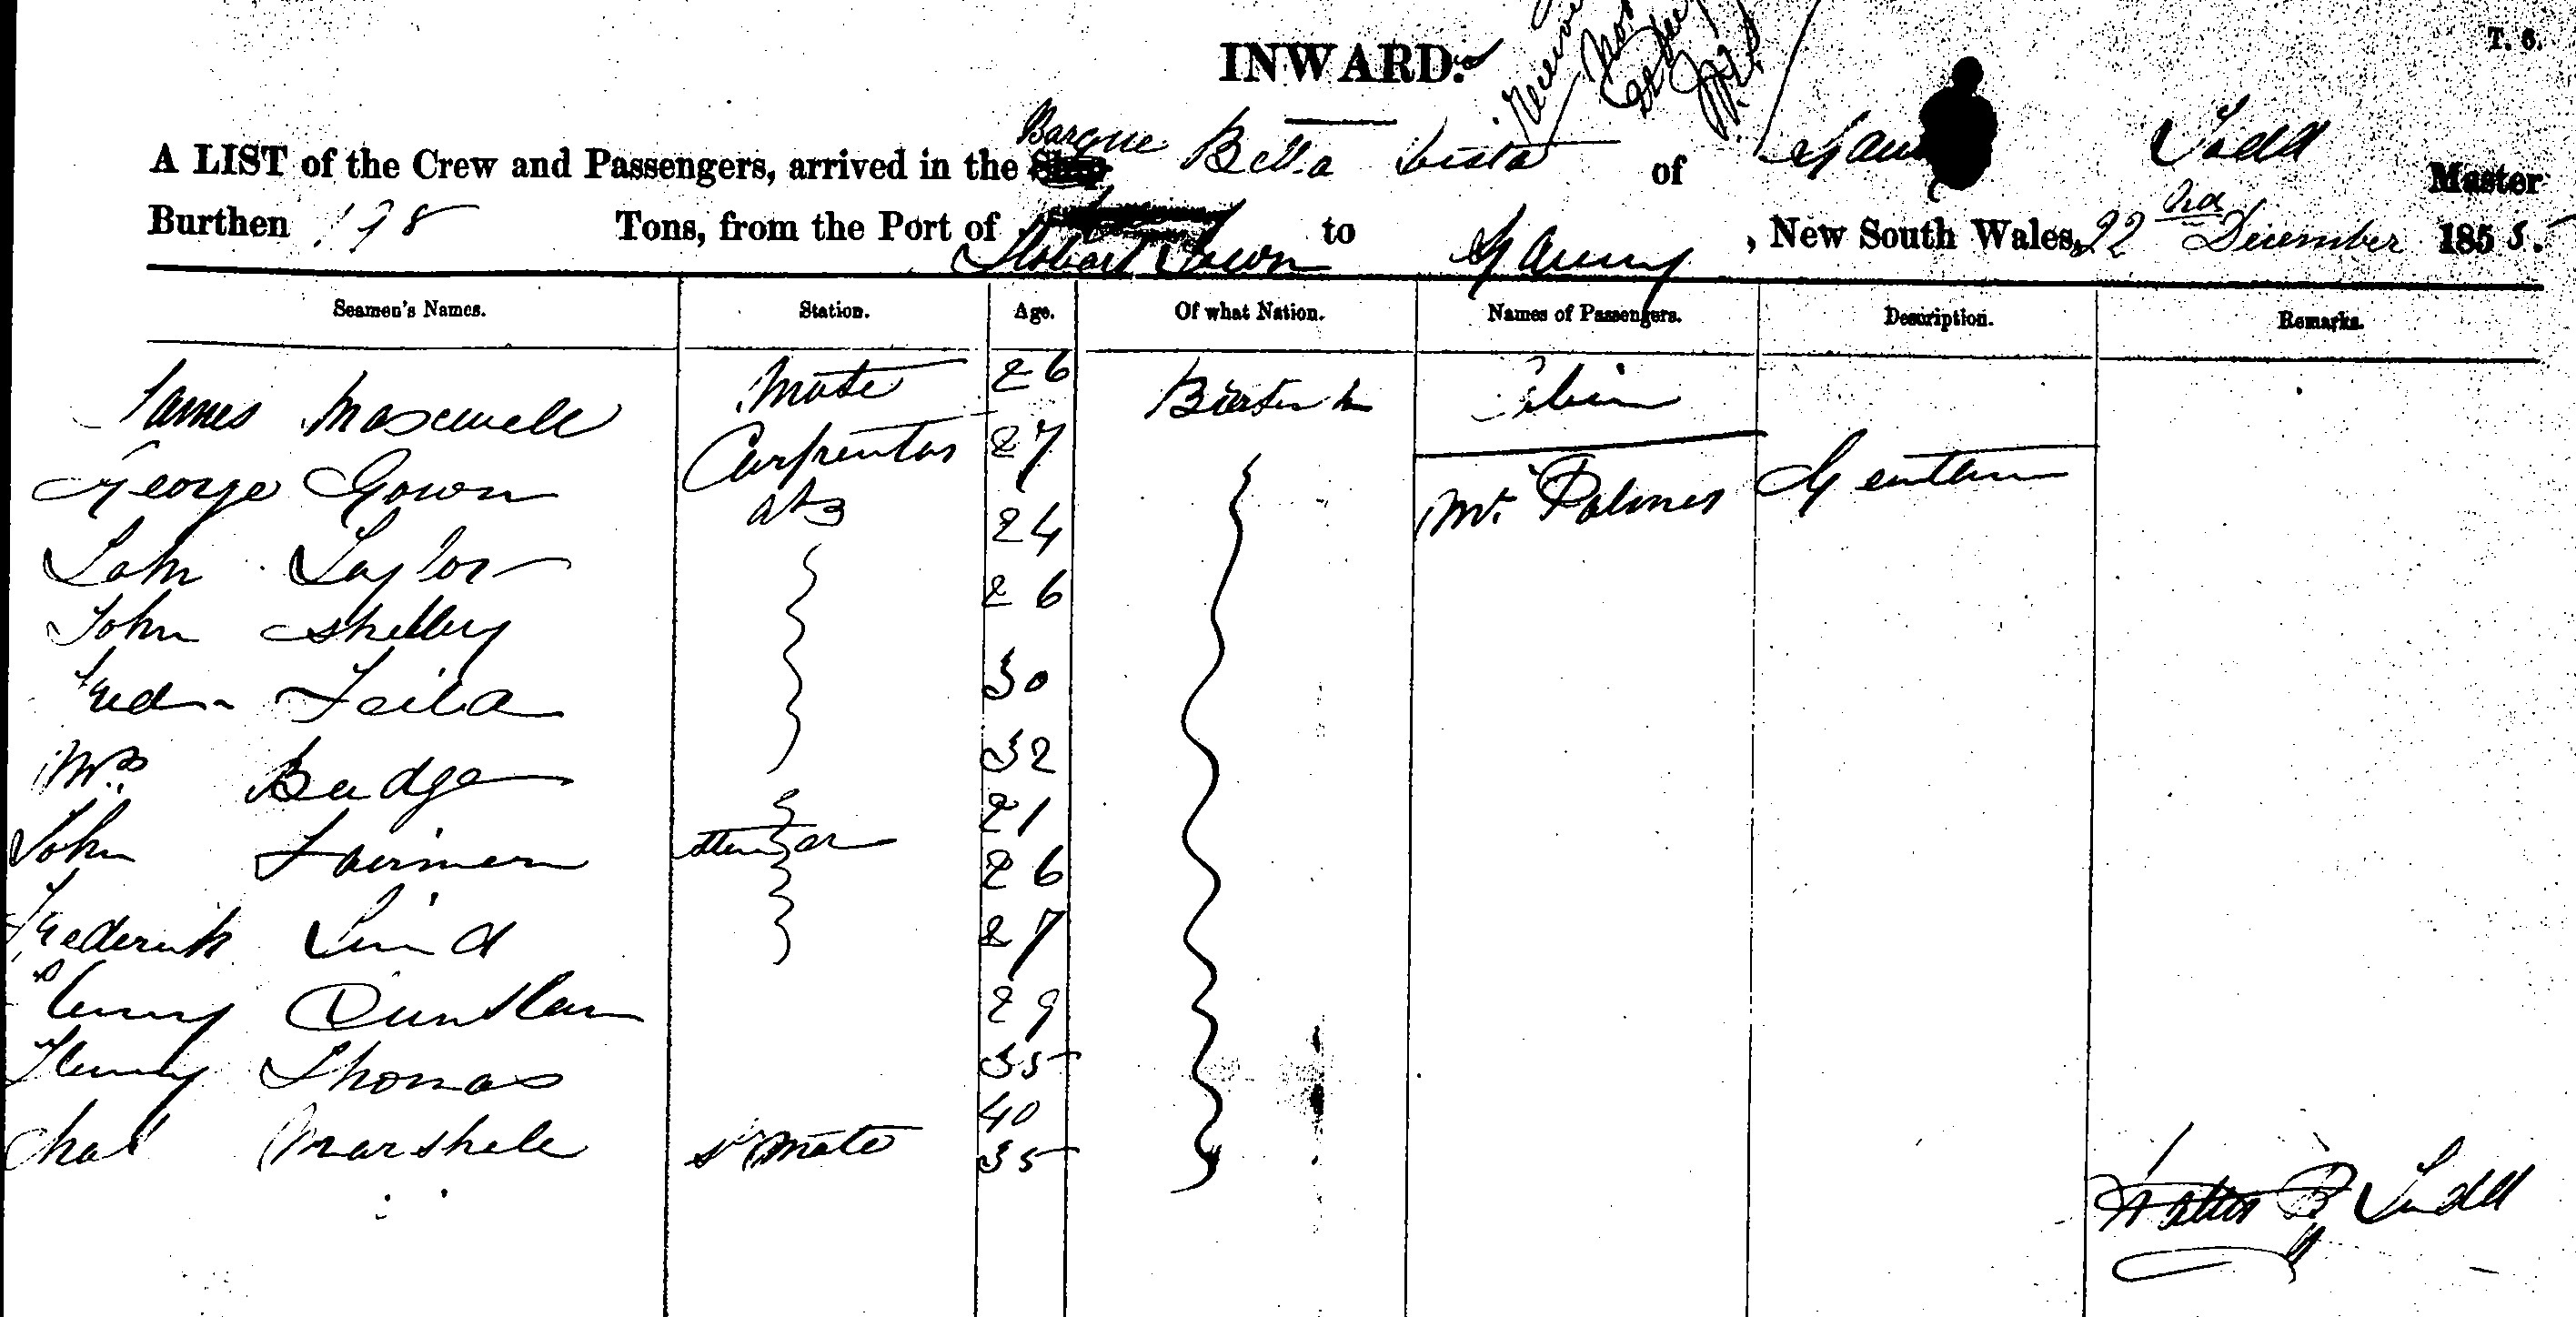 INWARD.
T. 6.
A LIST of the Crew and Passengers, arrived in the Barque Bella Vista of Todd Master
Burthen 198 Tons, from the Port of Hobart Town to Sydney, New South Wales, 22nd December 1855.
Seamen's Names. Station. Age. Of what Nation. Names of Passengers. Description. Remarks.
James Maxwell Mate 26 British Cabin
George Gown Carpenter 27 Mr. Palmer Gentlem
John Taylor AB 24
John Shelley 26
Fred 30
Wm Budge 32
John Fairman 21
Frederick Lind Steward 26
Henry Dunstan 27
Henry Thomas 29
Chas Marshall 35
40
Sd Mate 35
Walter Todd